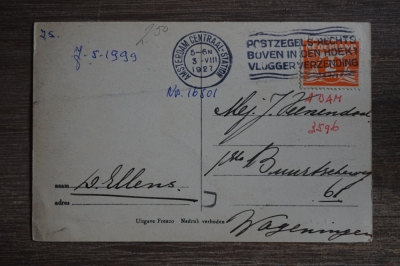 JS.
7-5-1999
/50
AMSTERDAM CENTRAAL-STATION
5-6N
3 VIII
1927
POSTZEGELS RECHTS
BOVEN IN DEN HOEK
VLUGGER VERZENDING
No. 16501
A DAM
3596
Mej. J. Veenendaal
p/a Buurtscheweg
68
Wageningen
NAAM: D. Ellens.
ADRES:
Uitgave Franco Nadruk verboden